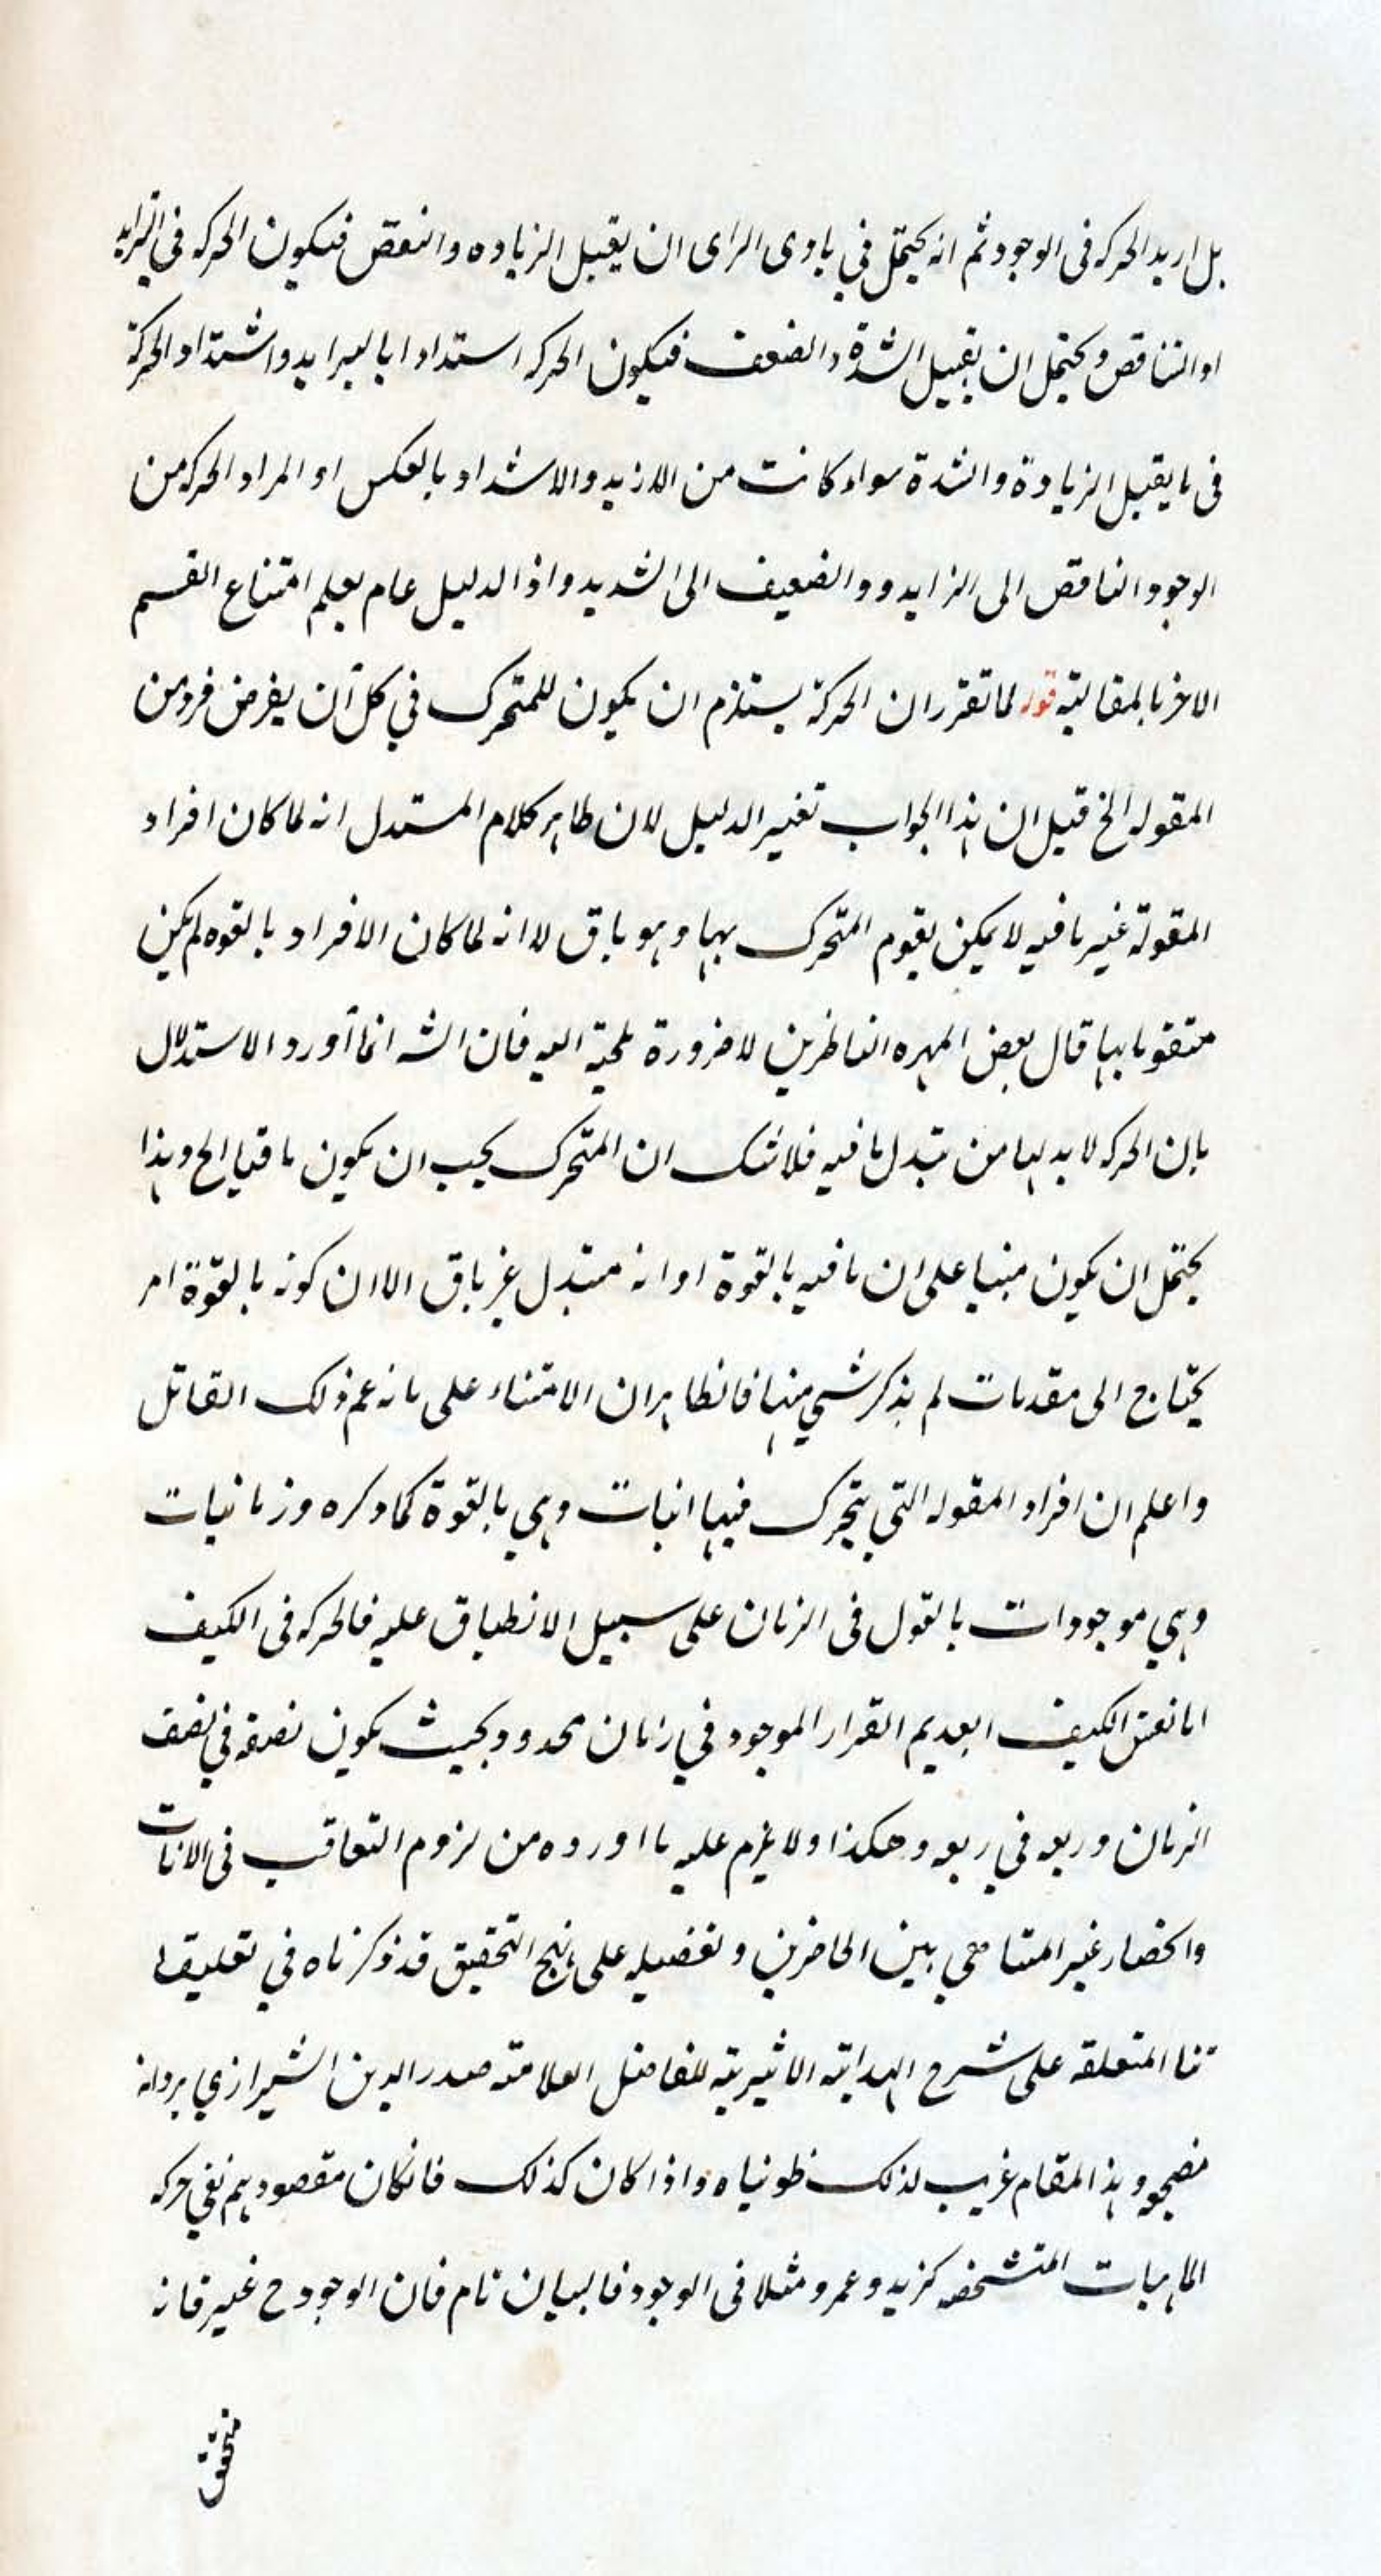 بل اريد الحركه فى الوجود ثم انه يحتمل في بادى الراى ان يقبل الزياده والنقص فيكون الحركه في التزايد
او التناقص ويحتمل ان يقبل الشدة والضعف فيكون الحركه استدادا بالبرايد واشتداد الحركة
فى ما يقبل الزيادة والشدة سواء كانت من الازيد والاشد او بالعكس او المراد الحركه من
الوجود الناقص الى الزايد و والضعيف الى الشديد واذ الدليل عام يعلم امتناع القسم
الاخر بالمقالبته قور لما تقرر ان الحركة يستلزم ان يكون للمتحرك في كل آن يفرض فرد من
المقوله الخ قيل ان هذا الجواب تغيير الدليل لان ظاهر كلام المستدل انه لما كان افراد
المقولة غير مافيه لا يمكن يقوم المتحرك بهبا وهو باق لا انه لما كان الافراد بالقوه لم يكن
متقوما بها قال بعض المهره الناظرين لا ضرورة ملجية اليه فان الشه انما آورد الاستدلال
بان الحركه لا بد لها من تبدل ما فيه فلا شك ان المتحرك يجب ان يكون باقيا الخ وهذا
يحتمل ان يكون مبنيا على ان ما فيه بالقوة او انه متبدل غر باق الا ان كونه بالقوة امر
يحتاج الى مقدمات لم يذكر شي منها فالظاهر ان الامتناء على ما نه عم ذلك القائل
واعلم ان افراد المقوله التي يتحرك فيها انيات وهي بالقوة كما دكره وزمانيات
وهي موجودات بالقول فى الزمان على سبيل الانطباق عليه فالحركه فى الكيف
اما نفس الكيف العديم القرار الموجود في زمان محدود بحيث يكون نصفه في نصف
الزمان وربعه في ربعه وهكذا ولا يلزم عليه ما اورده من لزوم التعاقب فى الانات
وانحصار غير المتناهي بين الحاضرين وتفضيله على نهج التحقيق قد ذكرناه في تعليقا
تنا المتعلقه على شرح الهدايته الاثيريته للفاضل العلامته صدر الدين الشيرازي بردالله
مضجعه وهذا المقام غريب لذلك طويناه واذا كان كذلك فانكان مقصودهم نفي حركه
الماهيات المتشخصه كزيد وعمرو مثلا فى الوجود فالبيان تام فان الوجود ح غير فانه